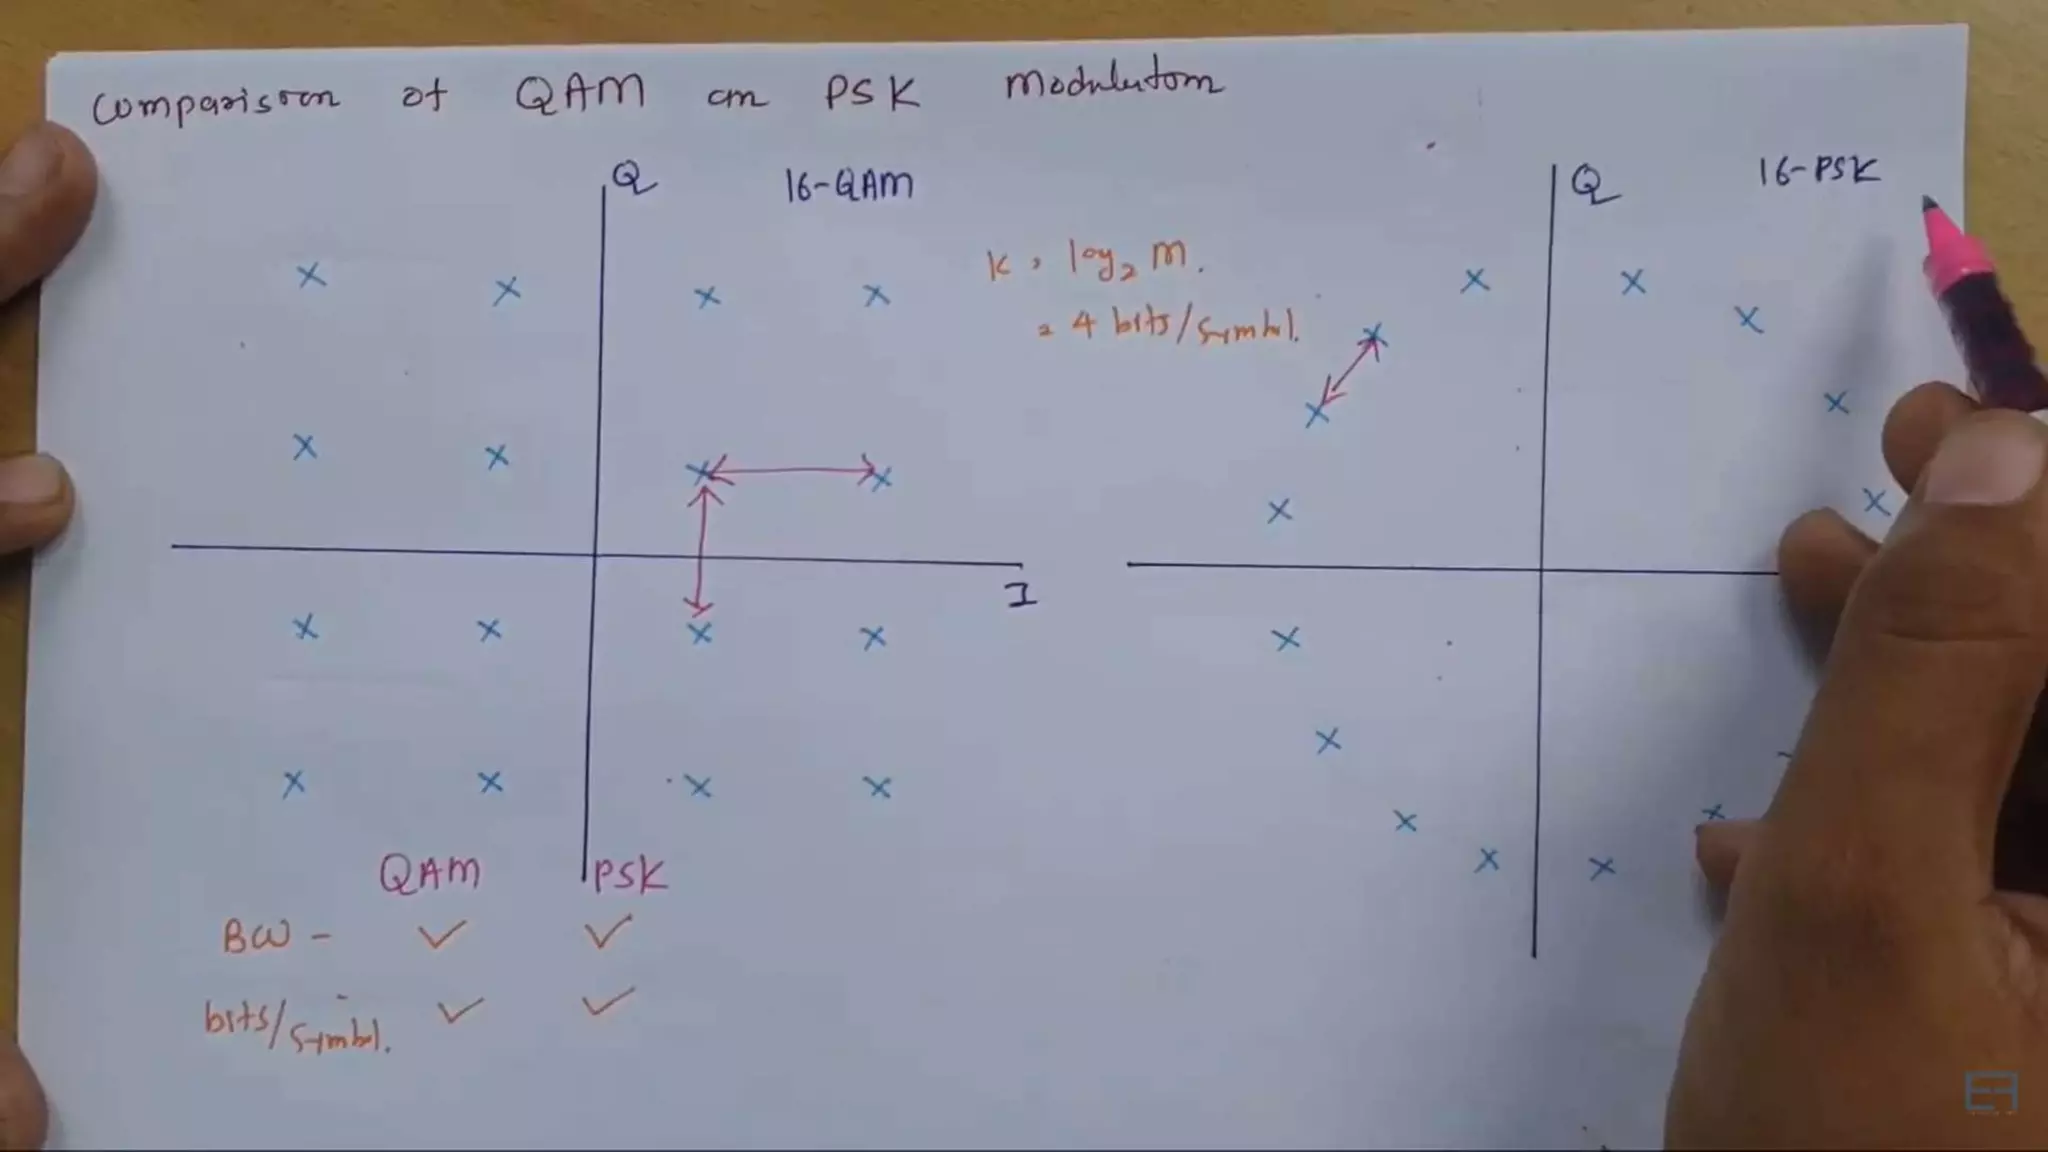 Comparison of QAM on PSK Modulation
Q
16-QAM
K = log2 M.
= 4 bits/symbol.
I
Q
16-PSK
QAM PSK
BW - ✓ ✓
bits/symbol. ✓ ✓
EF